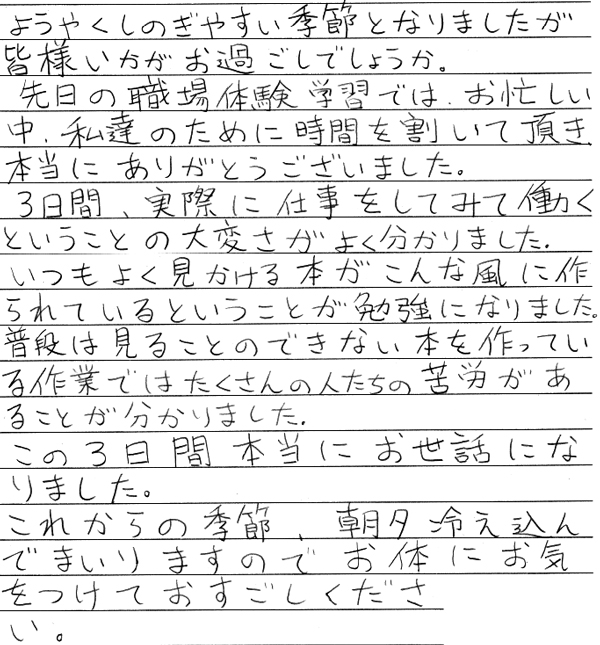 ようやくしのぎやすい季節となりましたが
皆様いかがお過ごしでしょうか。
先日の職場体験学習では、お忙しい
中、私達のために時間を割いて頂き
本当にありがとうございました。
3日間、実際に仕事をしてみて働く
ということの大変さがよく分かりました。
いつもよく見かける本がこんな風に作
られているということが勉強になりました。
普段は見ることのできない本を作ってい
る作業ではたくさんの人たちの苦労があ
ることが分かりました。
この3日間本当にお世話にな
りました。
これからの季節、朝夕冷え込ん
でまいりますのでお体にお気
をつけておすごしくださ
い。